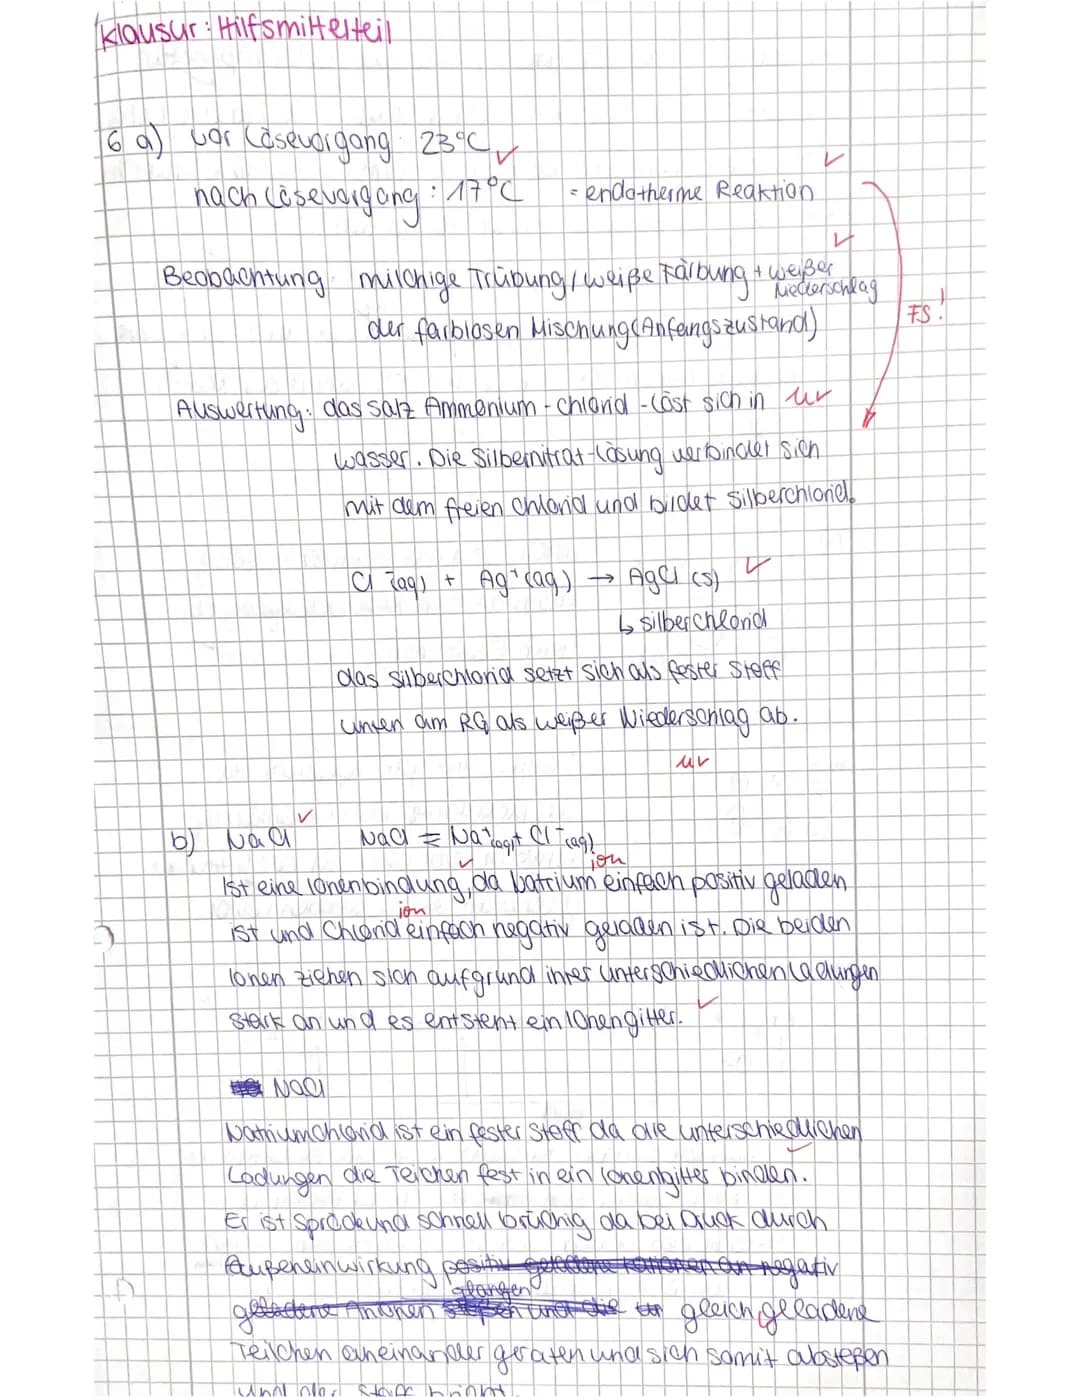 Klausur: Hilfsmittelteil
6 a) vor Lösevorgang: 23°C ✓
nach Lösevorgang: 17°C = endotherme Reaktion ✓
Beobachtung: milchige Trübung/weiße Färbung + weißer Niederschlag ✓
der farblosen Mischung (Anfangszustand)
FS!
Auswertung: das Salz Ammonium-Chlorid-löst sich in
Wasser. Die Silbernitrat-Lösung verbindet sich
mit dem freien Chlorid und bildet Silberchlorid.
Cl⁻(aq) + Ag⁺(aq) → AgCl (s) ✓
↳ Silberchlorid
das Silberchlorid setzt sich als fester Stoff
unten am RG als weißer Niederschlag ab.
b) NaCl ✓ NaCl = Na⁺(aq)+ Cl⁻(aq)
ion
Ist eine Ionenbindung, da Natrium einfach positiv geladen
ion
ist und Chlorid einfach negativ geladen ist. Die beiden
Ionen ziehen sich aufgrund ihrer unterschiedlichen Ladungen
stark an und es entsteht ein Ionengitter. ✓
NaCl
Natriumchlorid ist ein fester Stoff da die unterschiedlichen
Ladungen die Teilchen fest in ein Ionengitter binden.
Er ist Spröde und schnell brüchig da bei Druck durch
Außeneinwirkung positiv geladene Kationen an negativ
gelangen
geladene Anionen stoßen und die gleich geladene
Teilchen aneinander geraten und sich somit abstoßen
und der Stoff bricht.